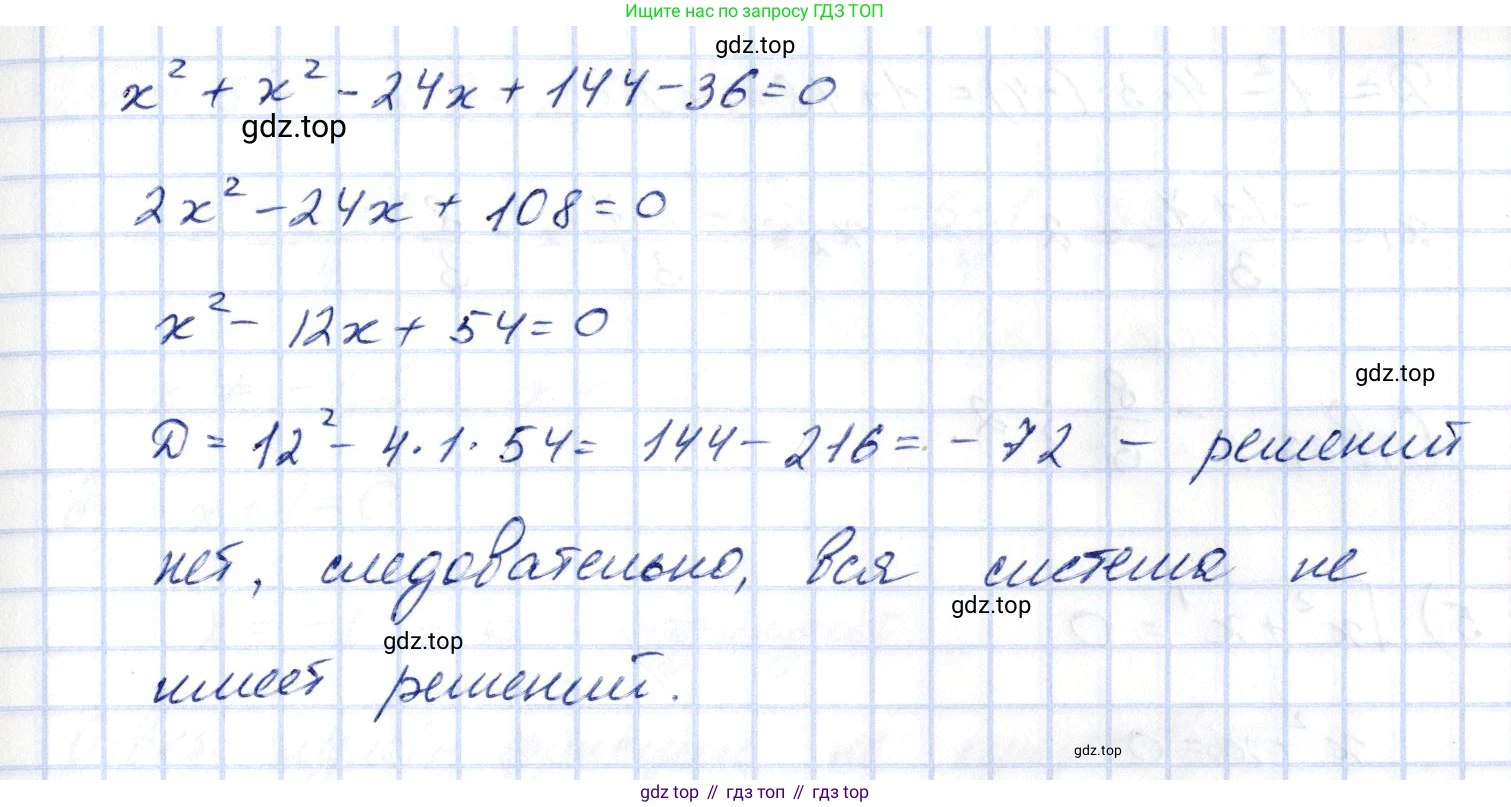 Ищите нас по запросу ГДЗ ТОП
gdz.top
x² + x² - 24x + 144 - 36 = 0
gdz.top
2x² - 24x + 108 = 0
x² - 12x + 54 = 0
gdz.top
D = 12² - 4·1·54 = 144 - 216 = -72 - решений
нет, следовательно, вся система не
gdz.top
gdz.top
имеет решений.
gdz.top
gdz top // гдз топ // гдз top